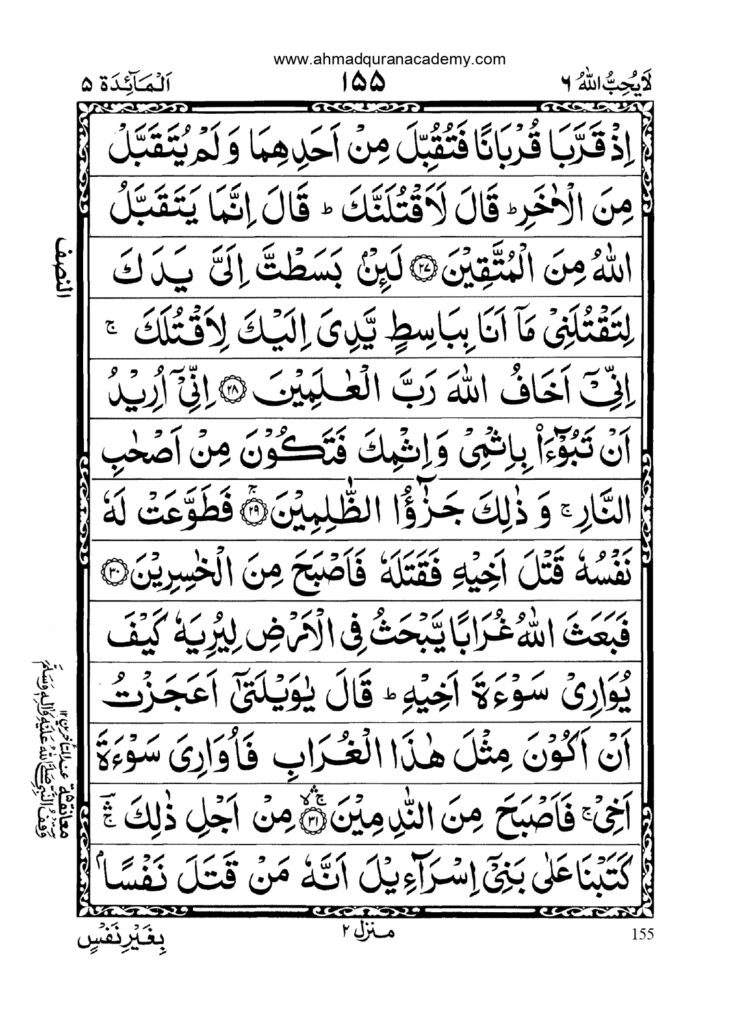 www.ahmadquranacademy.com
لَا يُحِبُّ اللهُ ٦
١٥٥
اَلْمَآئِدَة ٥
اِذْ قَرَّبَا قُرْبَانًا فَتُقُبِّلَ مِنْ اَحَدِهِمَا وَ لَمْ يُتَقَبَّلْ
مِنَ الْاٰخَرِ ؕ قَالَ لَاَقْتُلَنَّكَ ؕ قَالَ اِنَّمَا يَتَقَبَّلُ
اللهُ مِنَ الْمُتَّقِيْنَ ﴿٢٧﴾ لَئِنْۢ بَسَطْتَّ اِلَیَّ يَدَكَ
لِتَقْتُلَنِیْ مَاۤ اَنَا بِبَاسِطٍ يَّدِیَ اِلَيْكَ لِاَقْتُلَكَ ۚ
اِنِّیْۤ اَخَافُ اللهَ رَبَّ الْعٰلَمِيْنَ ﴿٢٨﴾ اِنِّیْۤ اُرِيْدُ
اَنْ تَبُوْٓءَاۡ بِاِثْمِیْ وَ اِثْمِكَ فَتَكُوْنَ مِنْ اَصْحٰبِ
النَّارِ ۚ وَ ذٰلِكَ جَزٰٓؤُا الظّٰلِمِيْنَ ﴿٢٩﴾ۚ فَطَوَّعَتْ لَهٗ
نَفْسُهٗ قَتْلَ اَخِيْهِ فَقَتَلَهٗ فَاَصْبَحَ مِنَ الْخٰسِرِيْنَ ﴿٣٠﴾
فَبَعَثَ اللهُ غُرَابًا يَّبْحَثُ فِی الْاَرْضِ لِيُرِيَهٗ كَيْفَ
يُوَارِیْ سَوْءَةَ اَخِيْهِ ؕ قَالَ يٰوَيْلَتٰۤی اَعَجَزْتُ
اَنْ اَكُوْنَ مِثْلَ هٰذَا الْغُرَابِ فَاُوَارِیَ سَوْءَةَ
اَخِیْ ۚ فَاَصْبَحَ مِنَ النّٰدِمِيْنَ ﴿٣١﴾ۚۛ مِنْ اَجْلِ ذٰلِكَ ۚۛ
كَتَبْنَا عَلٰی بَنِیْۤ اِسْرَآءِيْلَ اَنَّهٗ مَنْ قَتَلَ نَفْسًۢا
النصف
معانقة ٥ عند المتأخرين ١٢
وقف النبی صلی الله علیه واله وسلم
بِغَيْرِ نَفْسٍ
منزل ٢
155